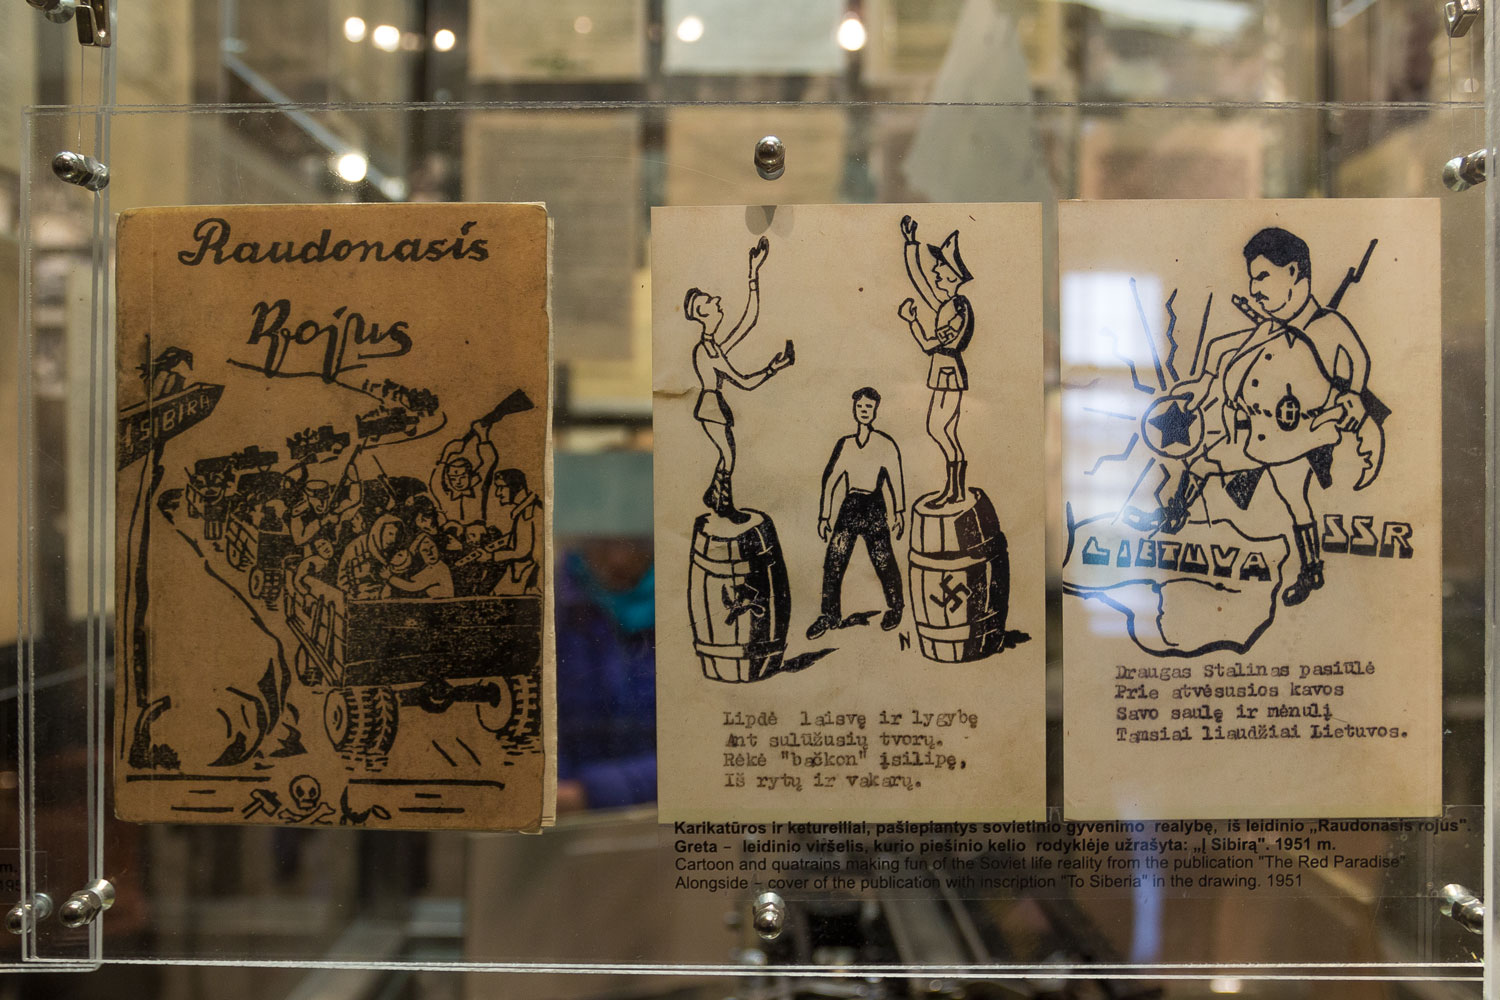 Raudonasis
Rojus
Į SIBIRĄ
N
Lipdė laisvę ir lygybę
Ant sulūžusių tvorų.
Rėkė "bačkon" įsilipę,
Iš rytų ir vakarų.
LIETUVA
SSR
Draugas Stalinas pasiūlė
Prie atvėsusios kavos
Savo saulę ir mėnulį
Tamsiai liaudžiai Lietuvos.
Karikatūros ir ketureiliai, pašiepiantys sovietinio gyvenimo realybę, iš leidinio „Raudonasis rojus".
Greta – leidinio viršelis, kurio piešinio kelio rodyklėje užrašyta: „Į Sibirą". 1951 m.
Cartoon and quatrains making fun of the Soviet life reality from the publication "The Red Paradise"
Alongside – cover of the publication with inscription "To Siberia" in the drawing. 1951
m.